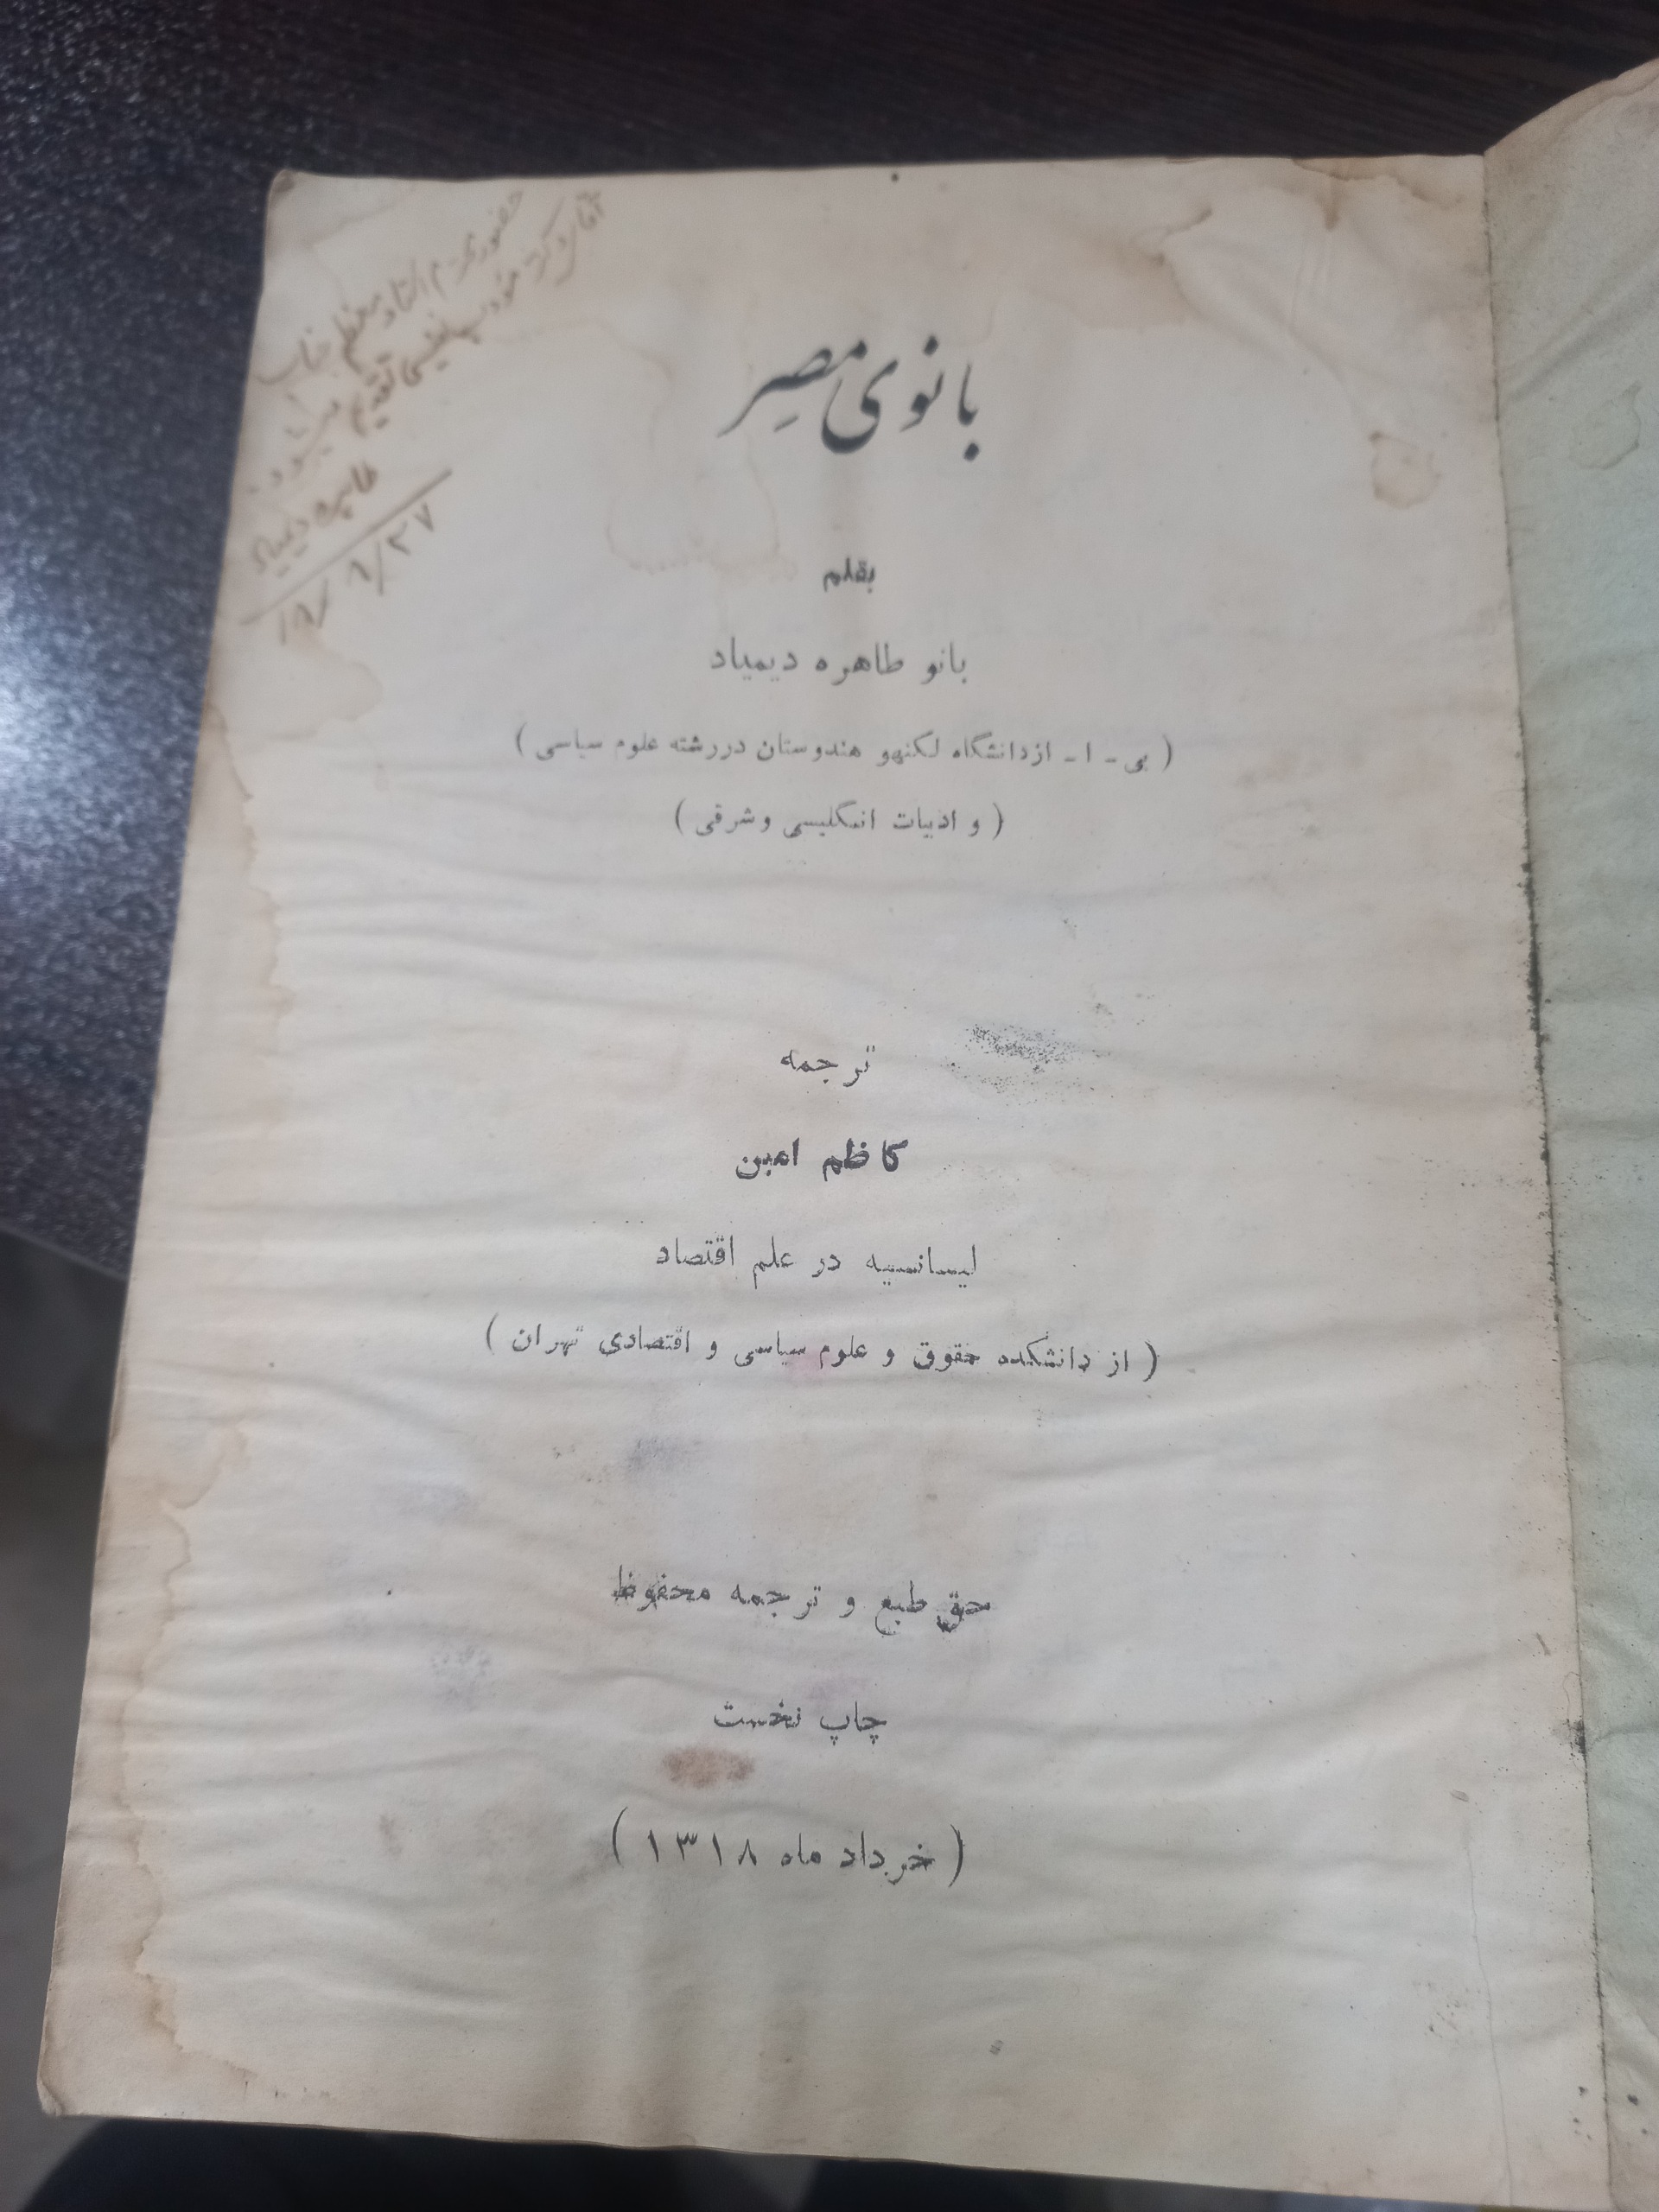 حضور محترم استاد معظم جناب
آقای دکتر مؤدب نفیسی تقدیم میشود.
طاهره دیمیاد
۱۸/۸/۲۷
بانوی مصر
بقلم
بانو طاهره دیمیاد
( بی - ا - از دانشگاه لکنهو هندوستان در رشته علوم سیاسی )
( و ادبیات انگلیسی و شرقی )
ترجمه
کاظم امین
لیسانسیه در علم اقتصاد
( از دانشکده حقوق و علوم سیاسی و اقتصادی تهران )
حق طبع و ترجمه محفوظ
چاپ نخست
( خرداد ماه ۱۳۱۸ )